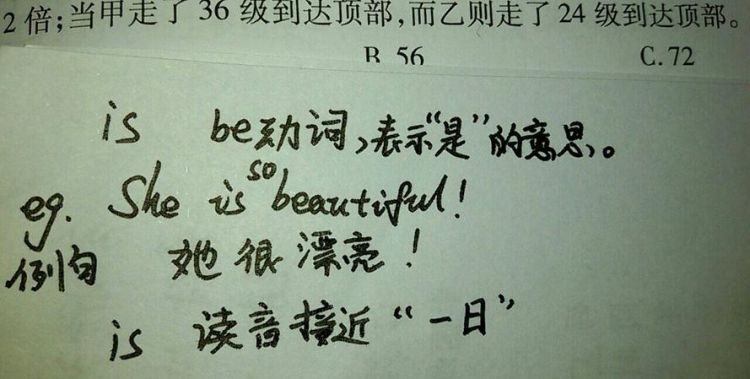 2倍;当甲走了36级到达顶部,而乙则走了24级到达顶部。
B 56 C.72
is be动词,表示“是”的意思。
eg. She is so beautiful!
例句 她很漂亮!
is 读音接近“一日”